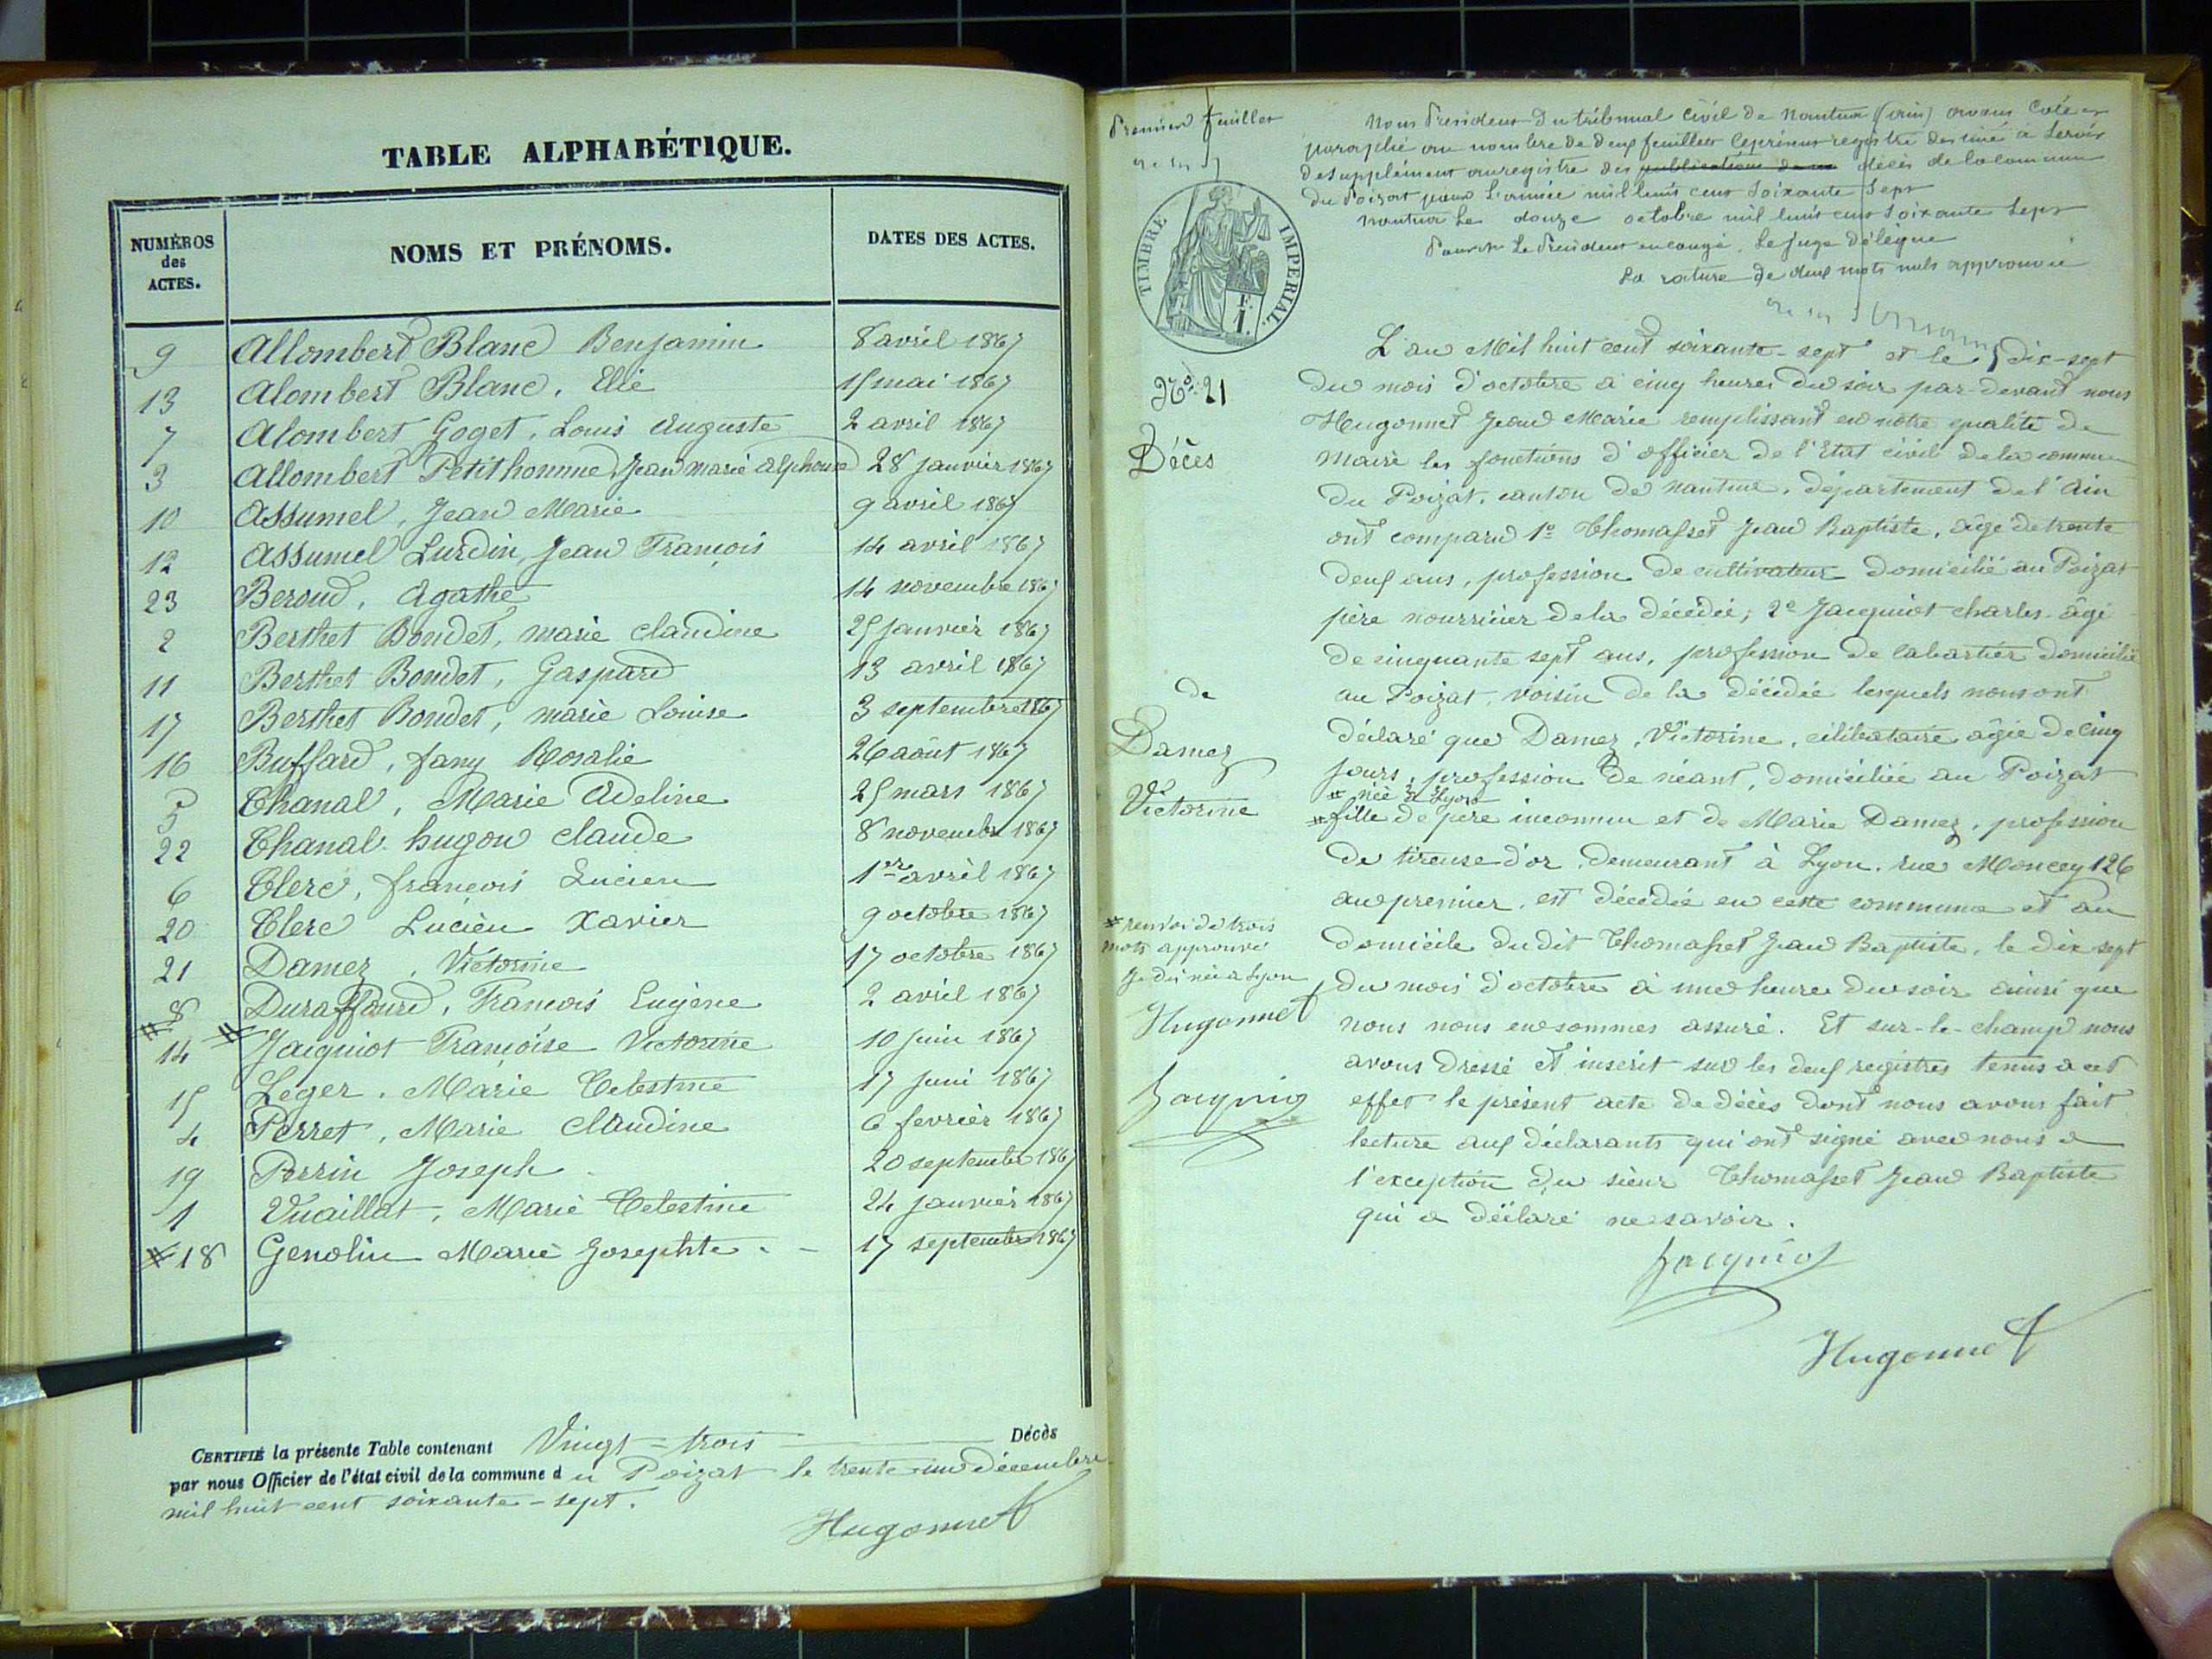 TABLE ALPHABÉTIQUE.
NUMÉROS des ACTES. NOMS ET PRÉNOMS. DATES DES ACTES.
9 Allombert Blanc Benjamin 8 avril 1867
13 Alombert Blanc, Elie 15 mai 1867
7 Alombert Goget, Louis Auguste 2 avril 1867
3 Allombert Petithomme Jean Marie Alphonse 28 janvier 1867
10 Assumel, Jean Marie 9 avril 1867
12 Assumel Lurdin, Jean François 14 avril 1867
23 Beroud, Agathe 14 novembre 1867
2 Berthet Bondet, marie Claudine 25 janvier 1867
11 Berthet Bondet, Gaspard 13 avril 1867
17 Berthet Bondet, marie Louise 3 septembre 1867
16 Buffard, fany Rosalie 26 août 1867
5 Chanal, Marie Adeline 25 mars 1867
22 Chanal hugon Claude 8 novembre 1867
6 Clerc, françois Lucien 1er avril 1867
20 Clerc Lucien Xavier 9 octobre 1867
21 Damez, Victorine 17 octobre 1867
8 Duraffourd, François Eugène 2 avril 1867
# 14 # Jacquiot Françoise Victorine 10 juin 1867
15 Léger. Marie Celestine 17 juin 1867
4 Perret, Marie Claudine 6 fevrier 1867
19 Perrin Joseph 20 septembre 1867
1 Vuaillat, Marie Celestine 24 janvier 1867
# 18 Genolin Marie Josephte 17 septembre 1867
CERTIFIÉ la présente Table contenant Vingt-trois Décès
par nous Officier de l'état civil de la commune du Poizat le trente-un décembre
mil huit cent soixante-sept.
Hugonnet
Premier feuillet
Nous Président du tribunal civil de Nantua (Ain) avons coté et
paraphé au nombre de deux feuillets le présent registre destiné à servir
de supplément au registre des publications de décès de la commune
du Poizat pour l'année mil huit cent soixante sept
Nantua le douze octobre mil huit cent soixante sept
Pour le Président en congé, le juge délégué
La rature de deux mots nuls approuvée
TIMBRE IMPERIAL.
No. 21
Décès
de
Damez
Victorine
L'an Mil huit cent soixante-sept et le dix-sept
du mois d'octobre à cinq heures du soir par-devant nous
Hugonnet Jean Marie remplissant en notre qualité de
maire les fonctions d'officier de l'Etat civil de la commune
du Poizat, canton de Nantua, département de l'Ain
ont comparu 1o Thomasset Jean Baptiste, âgé de trente
deux ans, profession de cultivateur domicilié au Poizat
père nourricier de la décédée; 2o Jacquiot Charles âgé
de cinquante sept ans, profession de cabartier domicilié
au Poizat, voisin de la décédée lesquels nous ont
déclaré que Damez, Victorine, célibataire âgée de cinq
jours, profession de néant, domiciliée au Poizat
# née à Lyon
# fille de père inconnu et de Marie Damez, profession
de tireuse d'or, demeurant à Lyon, rue Moncey 126
au premier, est décédée en cette commune et au
domicile dudit Thomasset Jean Baptiste, le dix sept
du mois d'octobre à une heure du soir ainsi que
nous nous en sommes assuré. Et sur-le-champ nous
avons dressé et inscrit sur les deux registres tenus à cet
effet le présent acte de décès dont nous avons fait
lecture aux déclarants qui ont signé avec nous à
l'exception du sieur Thomasset Jean Baptiste
qui a déclaré ne savoir.
# renvoi de trois
mots approuvé
née à Lyon
Hugonnet
Jacquiot
Jacquiot
Hugonnet